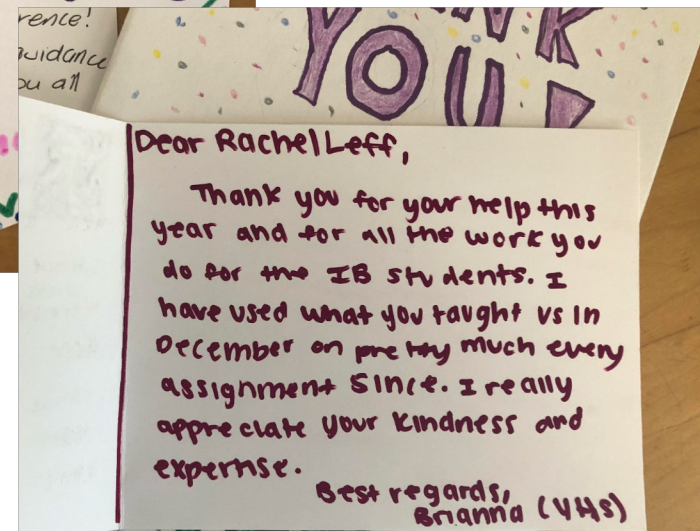 rence!
guidance
ou all
YOU!
Dear Rachel Leff,
Thank you for your help this
year and for all the work you
do for the IB students. I
have used what you taught us in
December on pretty much every
assignment since. I really
appreciate your kindness and
expertise.
Best regards,
Brianna (VHS)